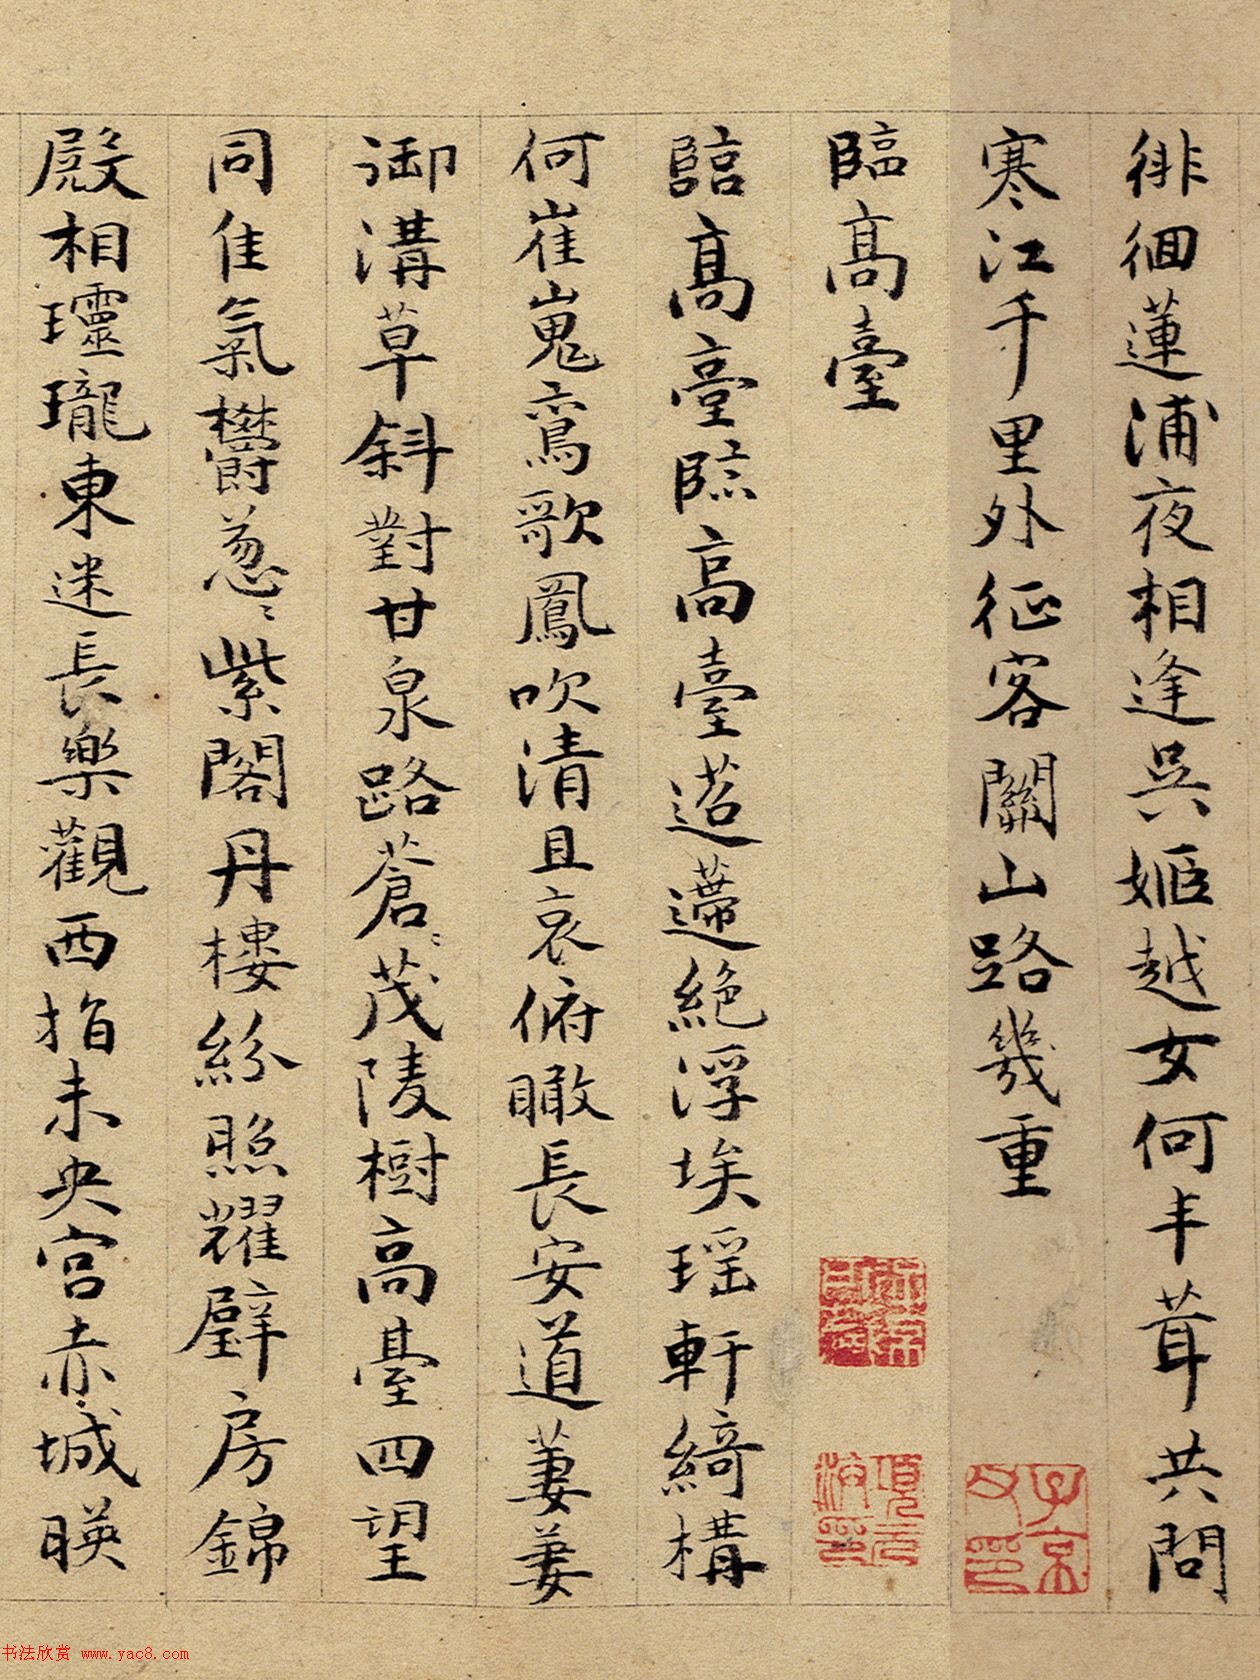 徘徊蓮浦夜相逢吳姬越女何丰茸共問
寒江千里外征客關山路幾重
臨高臺
臨高臺臨高臺迢遰絕浮埃瑤軒綺構
何崔嵬鸞歌鳳吹清且哀俯瞰長安道萋萋
御溝草斜對甘泉路蒼〻茂陵樹高臺四望
同佳氣鬱葱〻紫閣丹樓紛照耀璧房錦
殿相瓏瓏東迷長樂觀西指未央宮赤城映
子京父印
項元汴印
书法欣赏 www.yac8.com